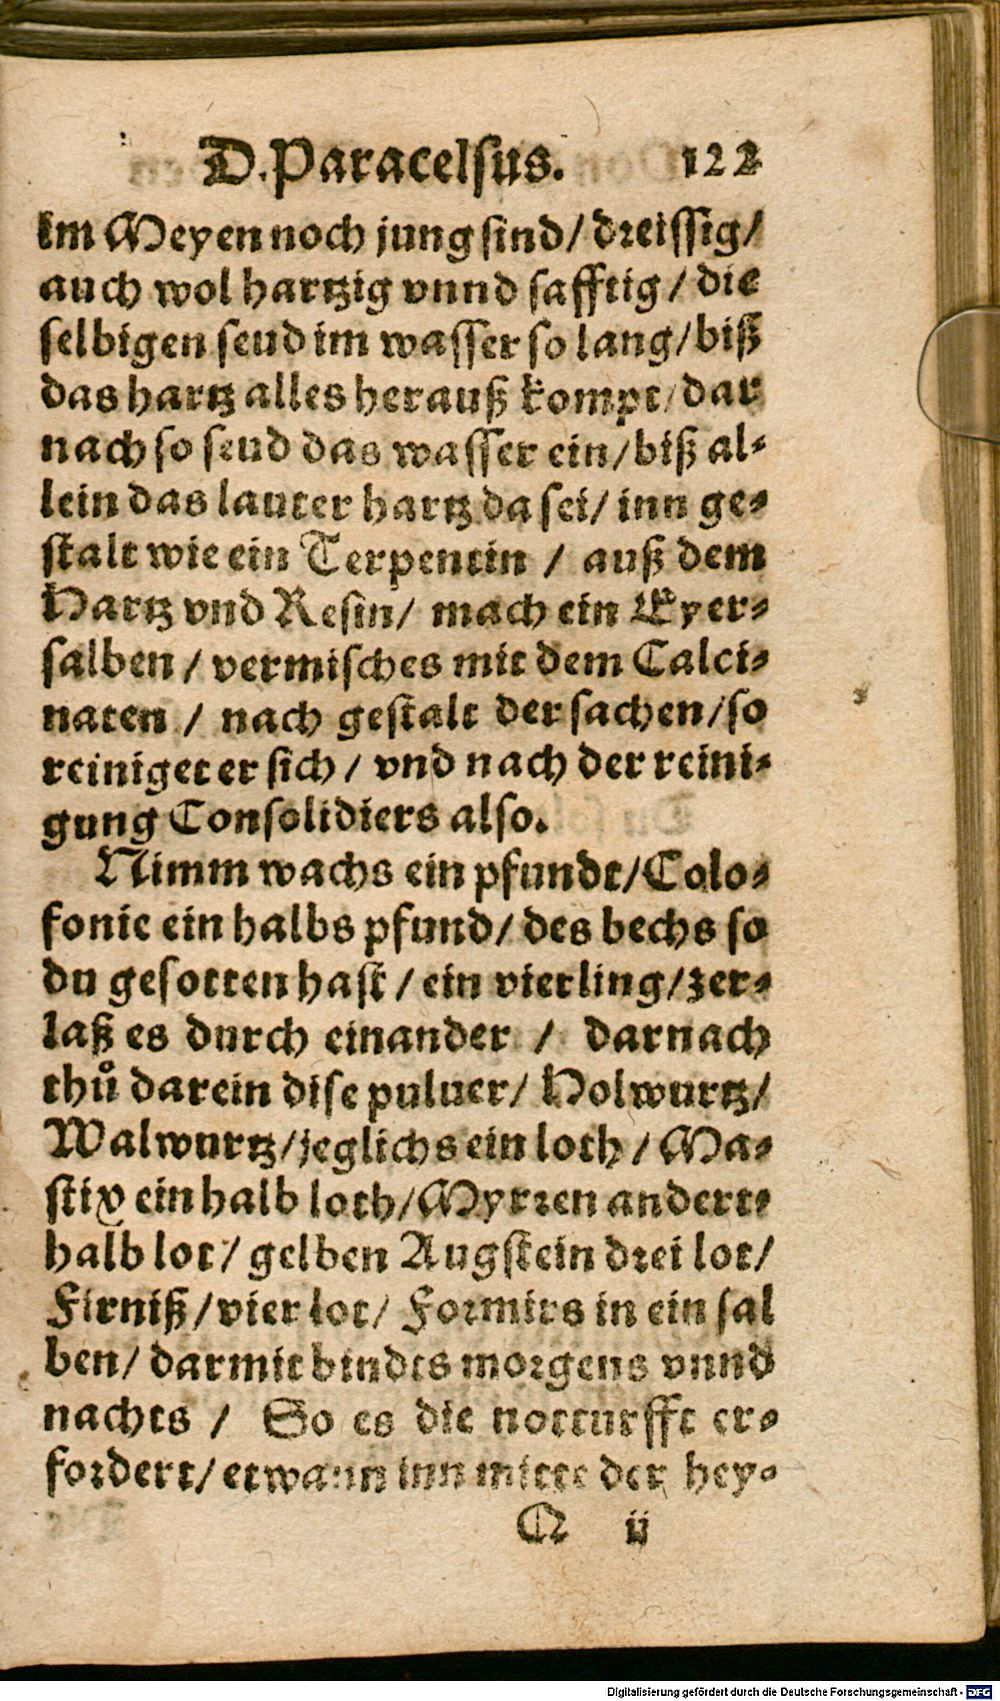 D. Paracelsus. 122
im Meyen noch jung sind/ dreissig/
auch wol hartzig vnnd safftig/ die
selbigen seud im wasser so lang/ biß
das hartz alles herauß kompt/ dar
nach so seud das wasser ein/ biß al-
lein das lauter hartz da sei/ inn ge-
stalt wie ein Terpentin / auß dem
Hartz vnd Resin/ mach ein Eyer-
salben / vermisches mit dem Calci-
naten / nach gestalt der sachen/ so
reiniget er sich / vnd nach der reini-
gung Consolidiers also.
Nimm wachs ein pfundt/ Colo-
fonie ein halbs pfund/ des bechs so
du gesotten hast / ein vierling/ zer-
laß es durch einander / darnach
thuͦ darein dise puluer/ Holwurtz/
Walwurtz/ jeglichs ein loth / Ma-
stix ein halb loth/ Myrren andert-
halb lot/ gelben Augstein drei lot/
Firniß/ vier lot/ Formirs in ein sal
ben/ darmit bindts morgens vnnd
nachts / So es die notturfft er-
fordert/ etwann inn mitte der hey-
Q ij
Digitalisierung gefördert durch die Deutsche Forschungsgemeinschaft - DFG